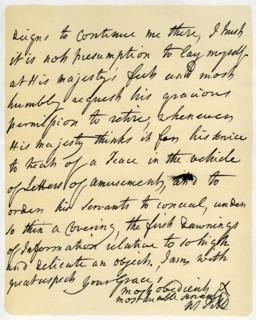 deigns to continue me there, I trust
it is not presumption to lay myself
at His majesty's feet and most
humbly request his gracious
permission to retire, whenever
His majesty thinks it for his service
to treat of a Peace in the vehicle
of letters of amusement, and to
order his servants to conceal, under
so thin a covering, the first dawnings
of Information relative to so high
and delicate an object. I am with
great respect Your Grace's
most obedient &
most humble servant
W. Pitt